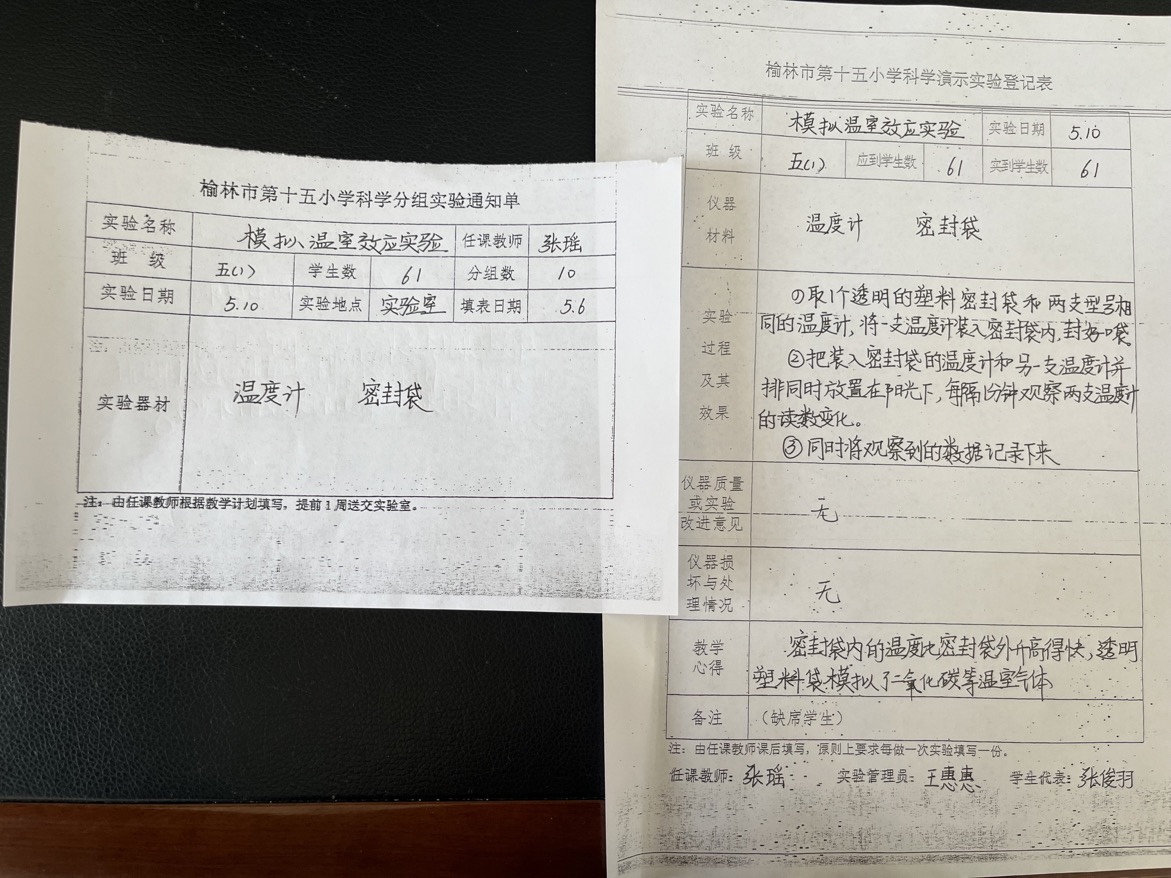 榆林市第十五小学科学分组实验通知单
实验名称 模拟温室效应实验 任课教师 张瑶
班级 五(1) 学生数 61 分组数 10
实验日期 5.10 实验地点 实验室 填表日期 5.6
实验器材 温度计 密封袋
注：由任课教师根据教学计划填写，提前1周送交实验室。
榆林市第十五小学科学演示实验登记表
实验名称 模拟温室效应实验 实验日期 5.10
班级 五(1) 应到学生数 61 实到学生数 61
仪器
材料
温度计 密封袋
实验
过程
及其
效果
①取1个透明的塑料密封袋和两支型号相
同的温度计，将一支温度计装入密封袋内，封好口袋
②把装入密封袋的温度计和另一支温度计并
排同时放置在阳光下，每隔1分钟观察两支温度计
的读数变化。
③同时将观察到的数据记录下来
仪器质量
或实验
改进意见
无
仪器损
坏与处
理情况
无
教学
心得
密封袋内的温度比密封袋外升高得快，透明
塑料袋模拟了二氧化碳等温室气体
备注 （缺席学生）
注：由任课教师课后填写，原则上要求每做一次实验填写一份。
任课教师：张瑶 实验管理员：王惠惠 学生代表：张俊羽